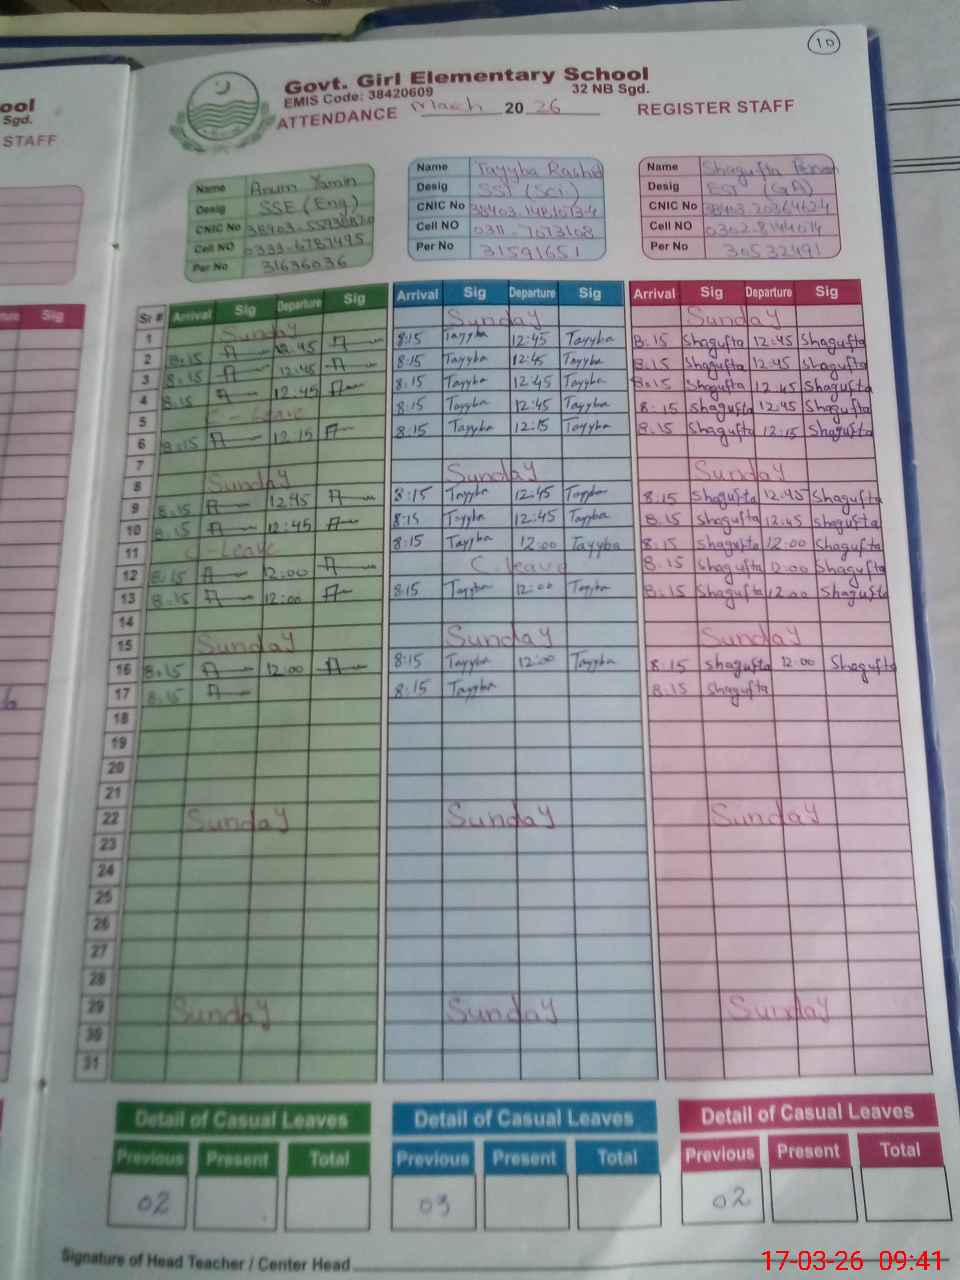 10
ool
Sgd.
STAFF
Govt. Girl Elementary School
EMIS Code: 38420609 32 NB Sgd.
ATTENDANCE March 2026 REGISTER STAFF
Name Anum Yamin
Desig SSE (Eng)
CNIC No
Cell NO 0333-6787495
Per No 31636036
Name Tayyba Rashid
Desig SST (Sci)
CNIC No
Cell NO 0311-7673108
Per No 31591651
Name Shagufta
Desig EST (GA)
CNIC No 38403-2036462-4
Cell NO 0302-8144014
Per No 30532491
Sig
Sr # Arrival Sig Departure Sig Arrival Sig Departure Sig Arrival Sig Departure Sig
1 Sunday Sunday Sunday
2 8:15 A 12:45 A 8:15 Tayyba 12:45 Tayyba 8:15 Shagufta 12:45 Shagufta
3 8:15 A 12:45 A 8:15 Tayyba 12:45 Tayyba 8:15 Shagufta 12:45 Shagufta
4 8:15 A 12:45 A 8:15 Tayyba 12:45 Tayyba 8:15 Shagufta 12:45 Shagufta
5 C-Leave 8:15 Tayyba 12:45 Tayyba 8:15 Shagufta 12:45 Shagufta
6 8:15 A 12:15 A 8:15 Tayyba 12:15 Tayyba 8:15 Shagufta 12:15 Shagufta
7
8 Sunday Sunday Sunday
9 8:15 A 12:45 A 8:15 Tayyba 12:45 Tayyba 8:15 Shagufta 12:45 Shagufta
10 8:15 A 12:45 A 8:15 Tayyba 12:45 Tayyba 8:15 Shagufta 12:45 Shagufta
11 C-Leave 8:15 Tayyba 12:00 Tayyba 8:15 Shagufta 12:00 Shagufta
12 8:15 A 12:00 A C.leave 8:15 Shagufta 12:00 Shagufta
13 8:15 A 12:00 A 8:15 Tayyba 12:00 Tayyba 8:15 Shagufta 12:00 Shagufta
14
15 Sunday Sunday Sunday
16 8:15 A 12:00 A 8:15 Tayyba 12:00 Tayyba 8:15 Shagufta 12:00 Shagufta
17 8:15 A 8:15 Tayyba 8:15 Shagufta
18
19
20
21
22 Sunday Sunday Sunday
23
24
25
26
27
28
29 Sunday Sunday Sunday
30
31
Detail of Casual Leaves Detail of Casual Leaves Detail of Casual Leaves
Previous Present Total Previous Present Total Previous Present Total
02 03 02
Signature of Head Teacher / Center Head
17-03-26 09:41